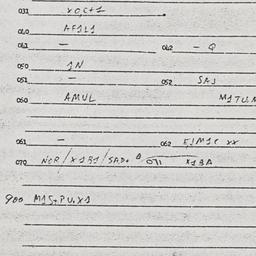 031 XOCT1
040 AF1L1
041 — 042 - Q
050 1N
051 — 052 SAJ
060 AMUL M1TU.N
061 — 062 EJM1C XX
070 NCR/X1B1/SAD. 071 X1BA
900 M1S+PU.X1